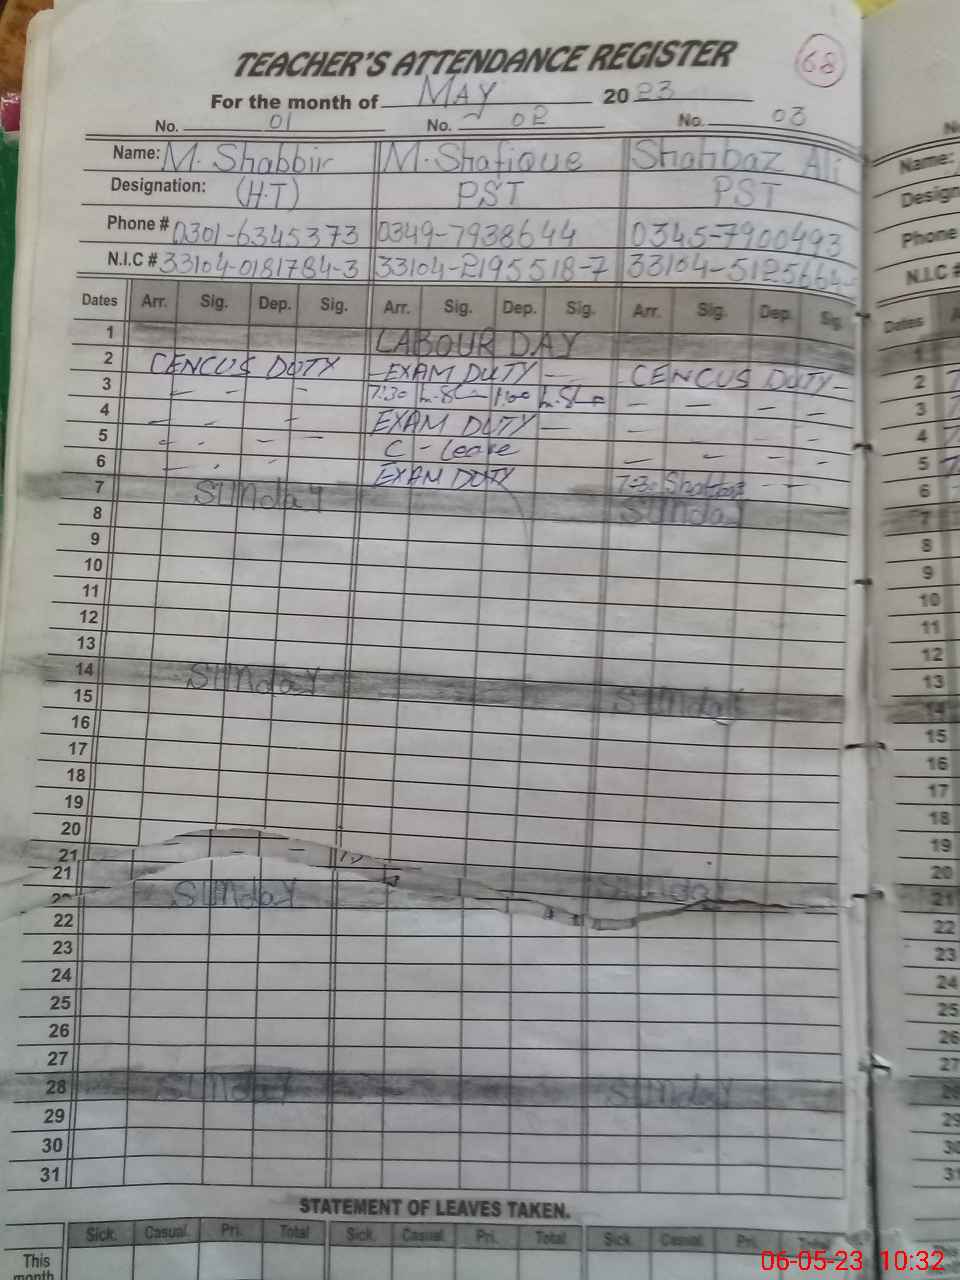 TEACHER'S ATTENDANCE REGISTER 68
For the month of MAY 2023
No. 01 No. 02 No. 03
Name: M. Shabbiir M. Shafique Shahbaz Ali
Designation: (H.T) PST PST
Phone # 0301-6345373 0349-7938644 0345-7900493
N.I.C # 33104-0181784-3 33104-2195518-7 33104-5125664-
Dates Arr. Sig. Dep. Sig. Arr. Sig. Dep. Sig. Arr. Sig. Dep. Sig.
1 LABOUR DAY
2 CENCUS DUTY - EXAM DUTY - CENCUS DUTY -
3 - - - 7:30 1:00 - - - -
4 - - - EXAM DUTY - - - - -
5 - - - - C - Leave - - - -
6 - - - EXAM DUTY 7:30 Shahbaz - -
7 SUNDAY Sunday
8
9
10
11
12
13
14 SUNDAY Sunday
15
16
17
18
19
20
21
21 SUNDAY Sunday
22
23
24
25
26
27
28 SUNDAY Sunday
29
30
31
STATEMENT OF LEAVES TAKEN.
Sick. Casual. Pri. Total Sick. Casual. Pri. Total Sick. Casual. Pri. Total
This
month
Name:
Design
Phone
N.I.C #
Dates
1
2
3
4
5
6
7
8
9
10
11
12
13
14
15
16
17
18
19
20
21
22
23
24
25
26
27
28
29
30
31
06-05-23 10:32